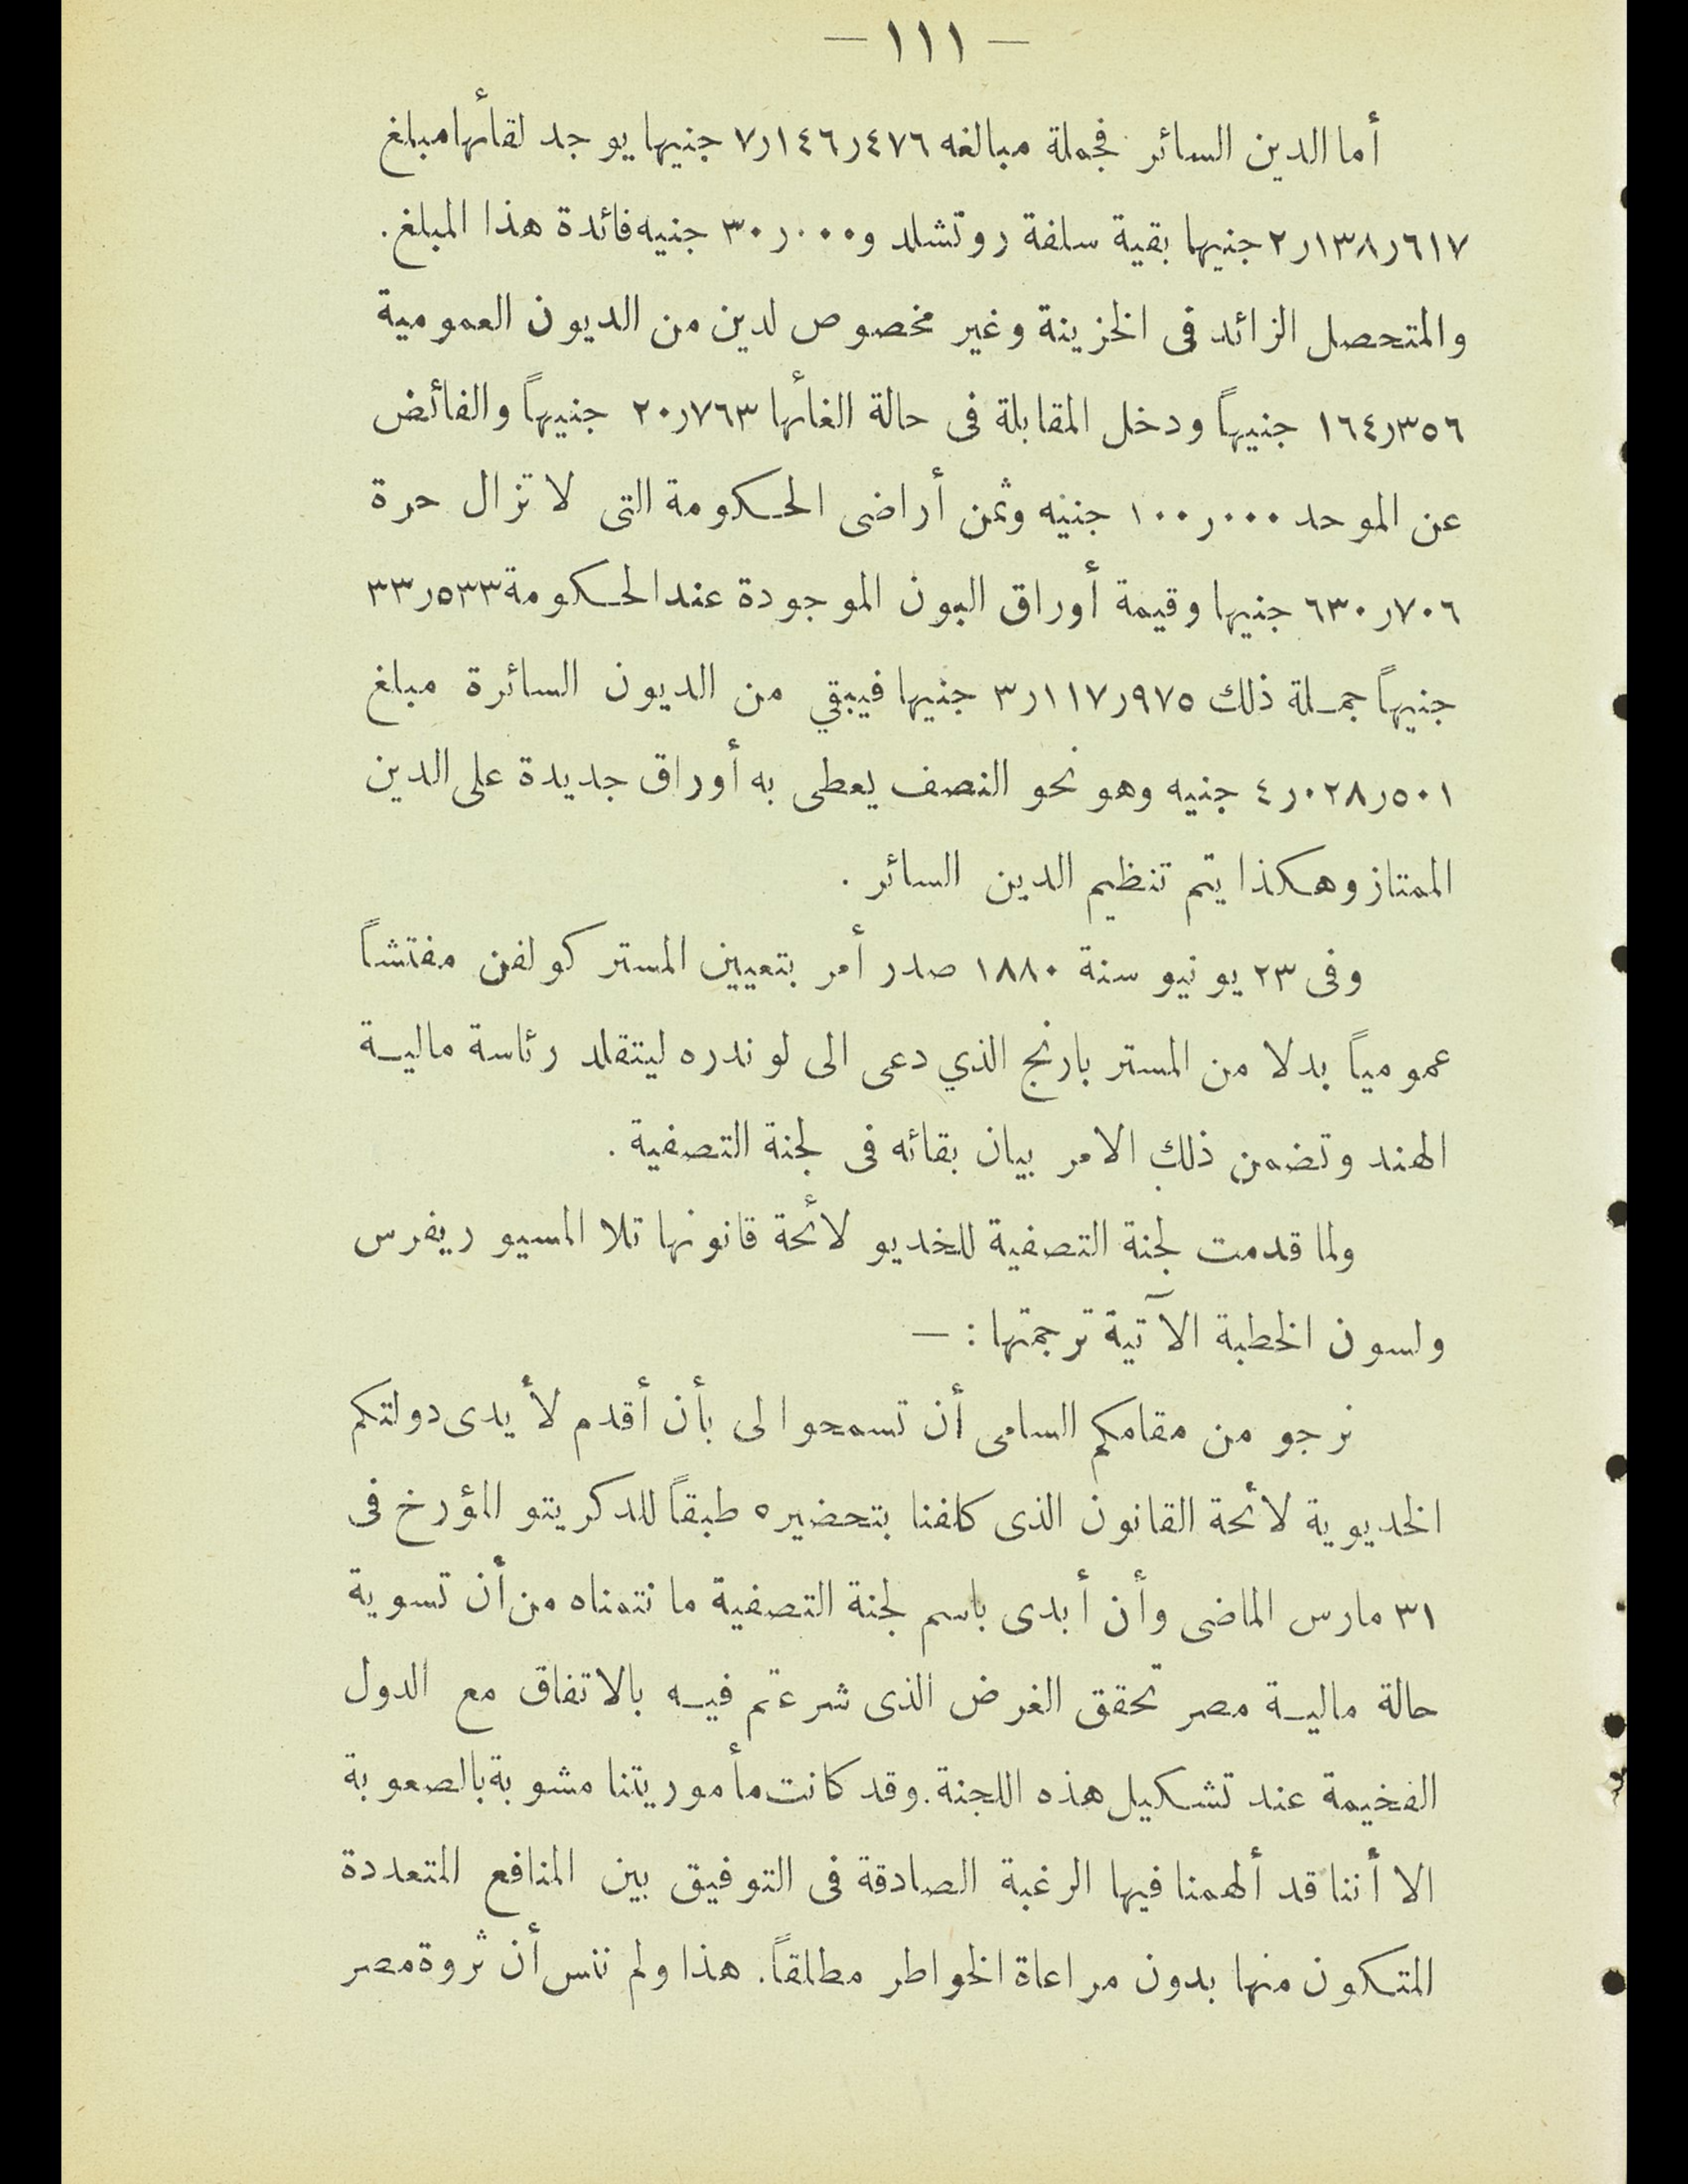 — ١١١ —
أما الدين السائر فجملة مبالغه ٧ر١٤٦ر٤٧٦ جنيها يوجد لقاءها مبلغ
٢ر١٣٨ر٦١٧ جنيها بقية سلفة روتشلد و٣٠ر٠٠٠ جنيه فائدة هذا المبلغ .
والمتحصل الزائد فى الخزينة وغير مخصوص لدين من الديون العمومية
١٦٤ر٣٥٦ جنيهاً ودخل المقابلة فى حالة الغائها ٢٠ر٧٦٣ جنيهاً والفائض
عن الموحد ١٠٠ر٠٠٠ جنيه وثمن أراضى الحكومة التى لا تزال حرة
٦٣٠ر٧٠٦ جنيها وقيمة أوراق البون الموجودة عند الحكومة ٣٣ر٥٣٣
جنيهاً جملة ذلك ٣ر١١٧ر٩٧٥ جنيها فيبقي من الديون السائرة مبلغ
٤ر٠٢٨ر٥٠١ جنيه وهو نحو النصف يعطى به أوراق جديدة على الدين
الممتاز وهكذا يتم تنظيم الدين السائر .
وفى ٢٣ يونيو سنة ١٨٨٠ صدر أمر بتعيين المستر كولفن مفتشاً
عمومياً بدلا من المستر بارنج الذي دعى الى لوندره ليتقلد رئاسة مالية
الهند وتضمن ذلك الامر بيان بقائه فى لجنة التصفية .
ولما قدمت لجنة التصفية للخديو لائحة قانونها تلا المسيو ريفرس
ولسون الخطبة الآتية ترجمتها : —
نرجو من مقامكم السامى أن تسمحوا لى بأن أقدم لأيدى دولتكم
الخديوية لائحة القانون الذى كلفنا بتحضيره طبقاً للدكريتو المؤرخ فى
٣١ مارس الماضى وأن أبدى باسم لجنة التصفية ما نتمناه من أن تسوية
حالة مالية مصر تحقق الغرض الذى شرعتم فيه بالاتفاق مع الدول
الفخيمة عند تشكيل هذه اللجنة . وقد كانت مأموريتنا مشوبة بالصعوبة
الا أننا قد ألهمنا فيها الرغبة الصادقة فى التوفيق بين المنافع المتعددة
المتكون منها بدون مراعاة الخواطر مطلقاً . هذا ولم ننس أن ثروة مصر